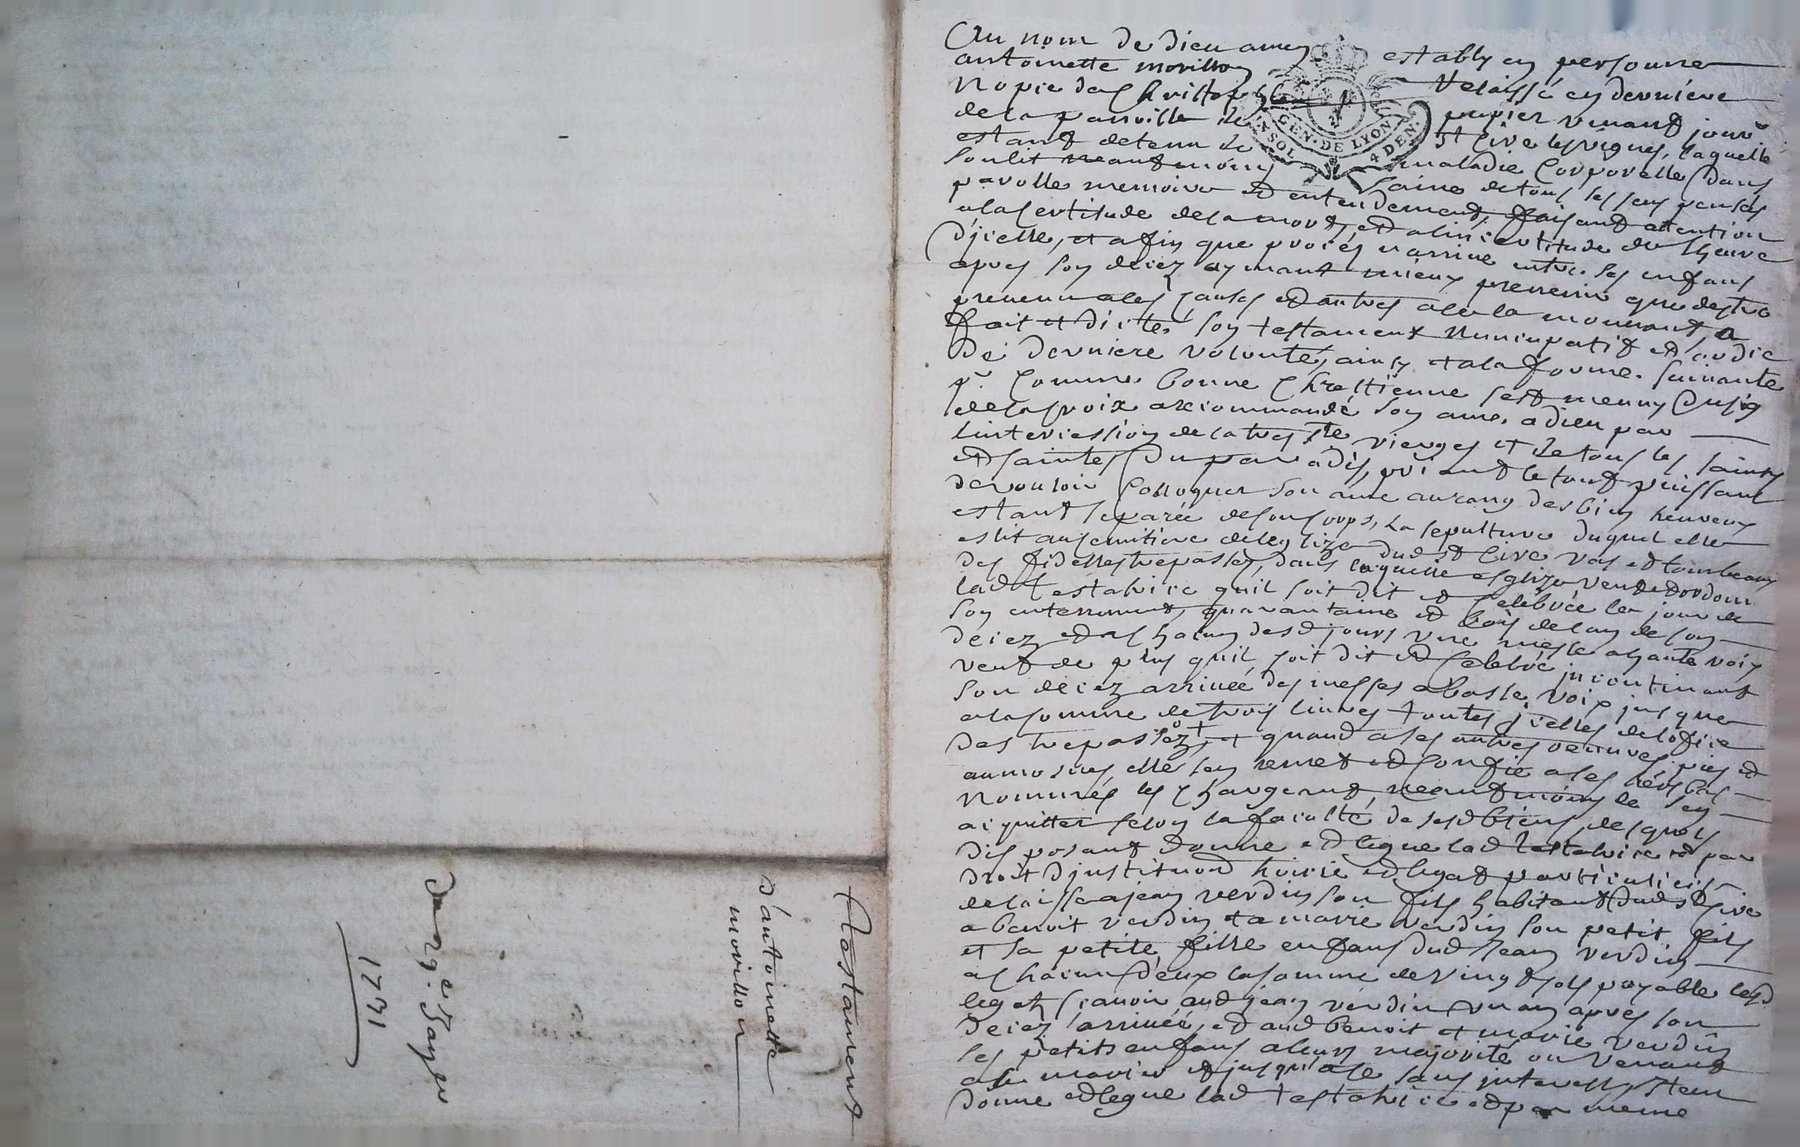 Testament
d'antoinette
morillon
1731
Au nom de dieu amen establÿ en personne
antoinette morillon delaissé en derniere
nopce de Christophle papier vivant jour
de la parroisse de St Cire les vignes, laquelle
estant detenu de maladie Corporelle dans
son lit neantmoins saine de tous ses sens pensés
parolle memoire et entendement, faisant attention
a la certitude de la mort, et a lincertitude de lheure
d'jcelle, et afin que procés narrive entre ses enfans
apres son decez aymant mieux prevenir que destre
prevenu a les causes et autres a ce la mouvant, a
fait et dicté son testament nuncupatif et ordce
de derniere volonté, ainsy et a la forme suivante
pr. Comme bonne Chrestienne sest meuny du sig
de la croix a recommandé son ame a dieu par
lintercession de la tres Ste vierge et de tous les saints
et saintes du paradis, priant le tout puissant
de vouloir Colloquer son ame au rang des bien heureux
estant separée de son corps, la sepulture duquel elle
eslit au cemitiere de leglize dud St Cire vas et tombeaux
des fidelles trepassés, dans laquelle esglize veut et ordonne
lad testatrice quil soit dit et Celebrée le jour de
son enterrement, quarantaine et bout de lan de son
decez et a chacun desd jours une messe a haute voix
veut de plus quil soit dit et Celebré jncontinant
son decez arrivée des messes a basse voix jusques
a la somme de trois livres toutes jcelles de lofice
des trepassez, et quand a ses autres oeuvres pies et
aumosnes elle sen remet et confie a ses heres bas
nommés les chargeant neantmoins de sen
acquitter selon la faculté de sesd biens, desquels
disposant donne et legue lad testatrice et par
droit djnstituon hoirie et legat particulier
delaisse a jean verdin son fils habitant dud St Cire
a benoit verdin et a marie verdin son petit fils
et sa petite fille enfans dud jean verdin
a chacun deux la somme de vingt sols payable lesd
legats scavoir aud jean verdin un an apres son
decez arrivée, et aud benoit et marie verdin
ses petits enfans a leur majorité ou venant
a se marier et jusqu'a ce sans jnterest, jtem
donne et legue lad testatrice et par meme